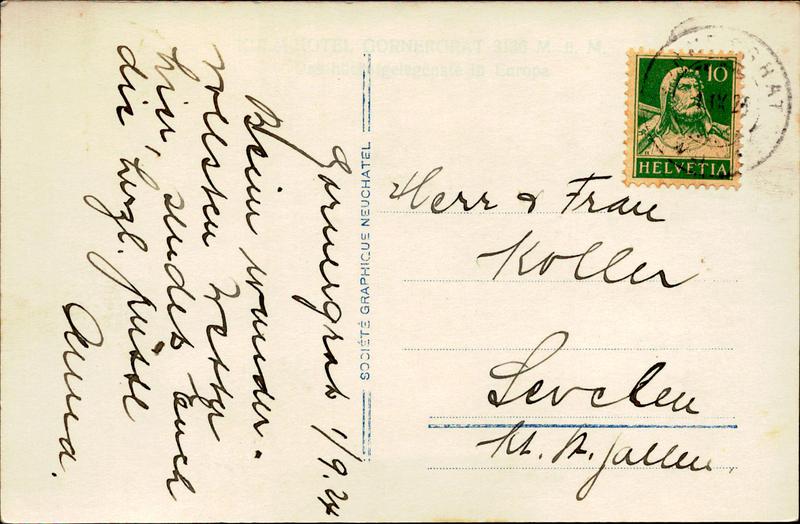 KULM HOTEL GORNERGRAT 3136 M. ü. M.
Das höchstgelegenste in Europa
Gornergrat 1/9.24
Beim wunder-
vollsten Wetter
hier, sendet Euch
die herzl. Grüsse
Anna.
SOCIÉTÉ GRAPHIQUE NEUCHATEL
10
HELVETIA
Herr & Frau
Koller
Sevelen
Kt. St. Gallen.